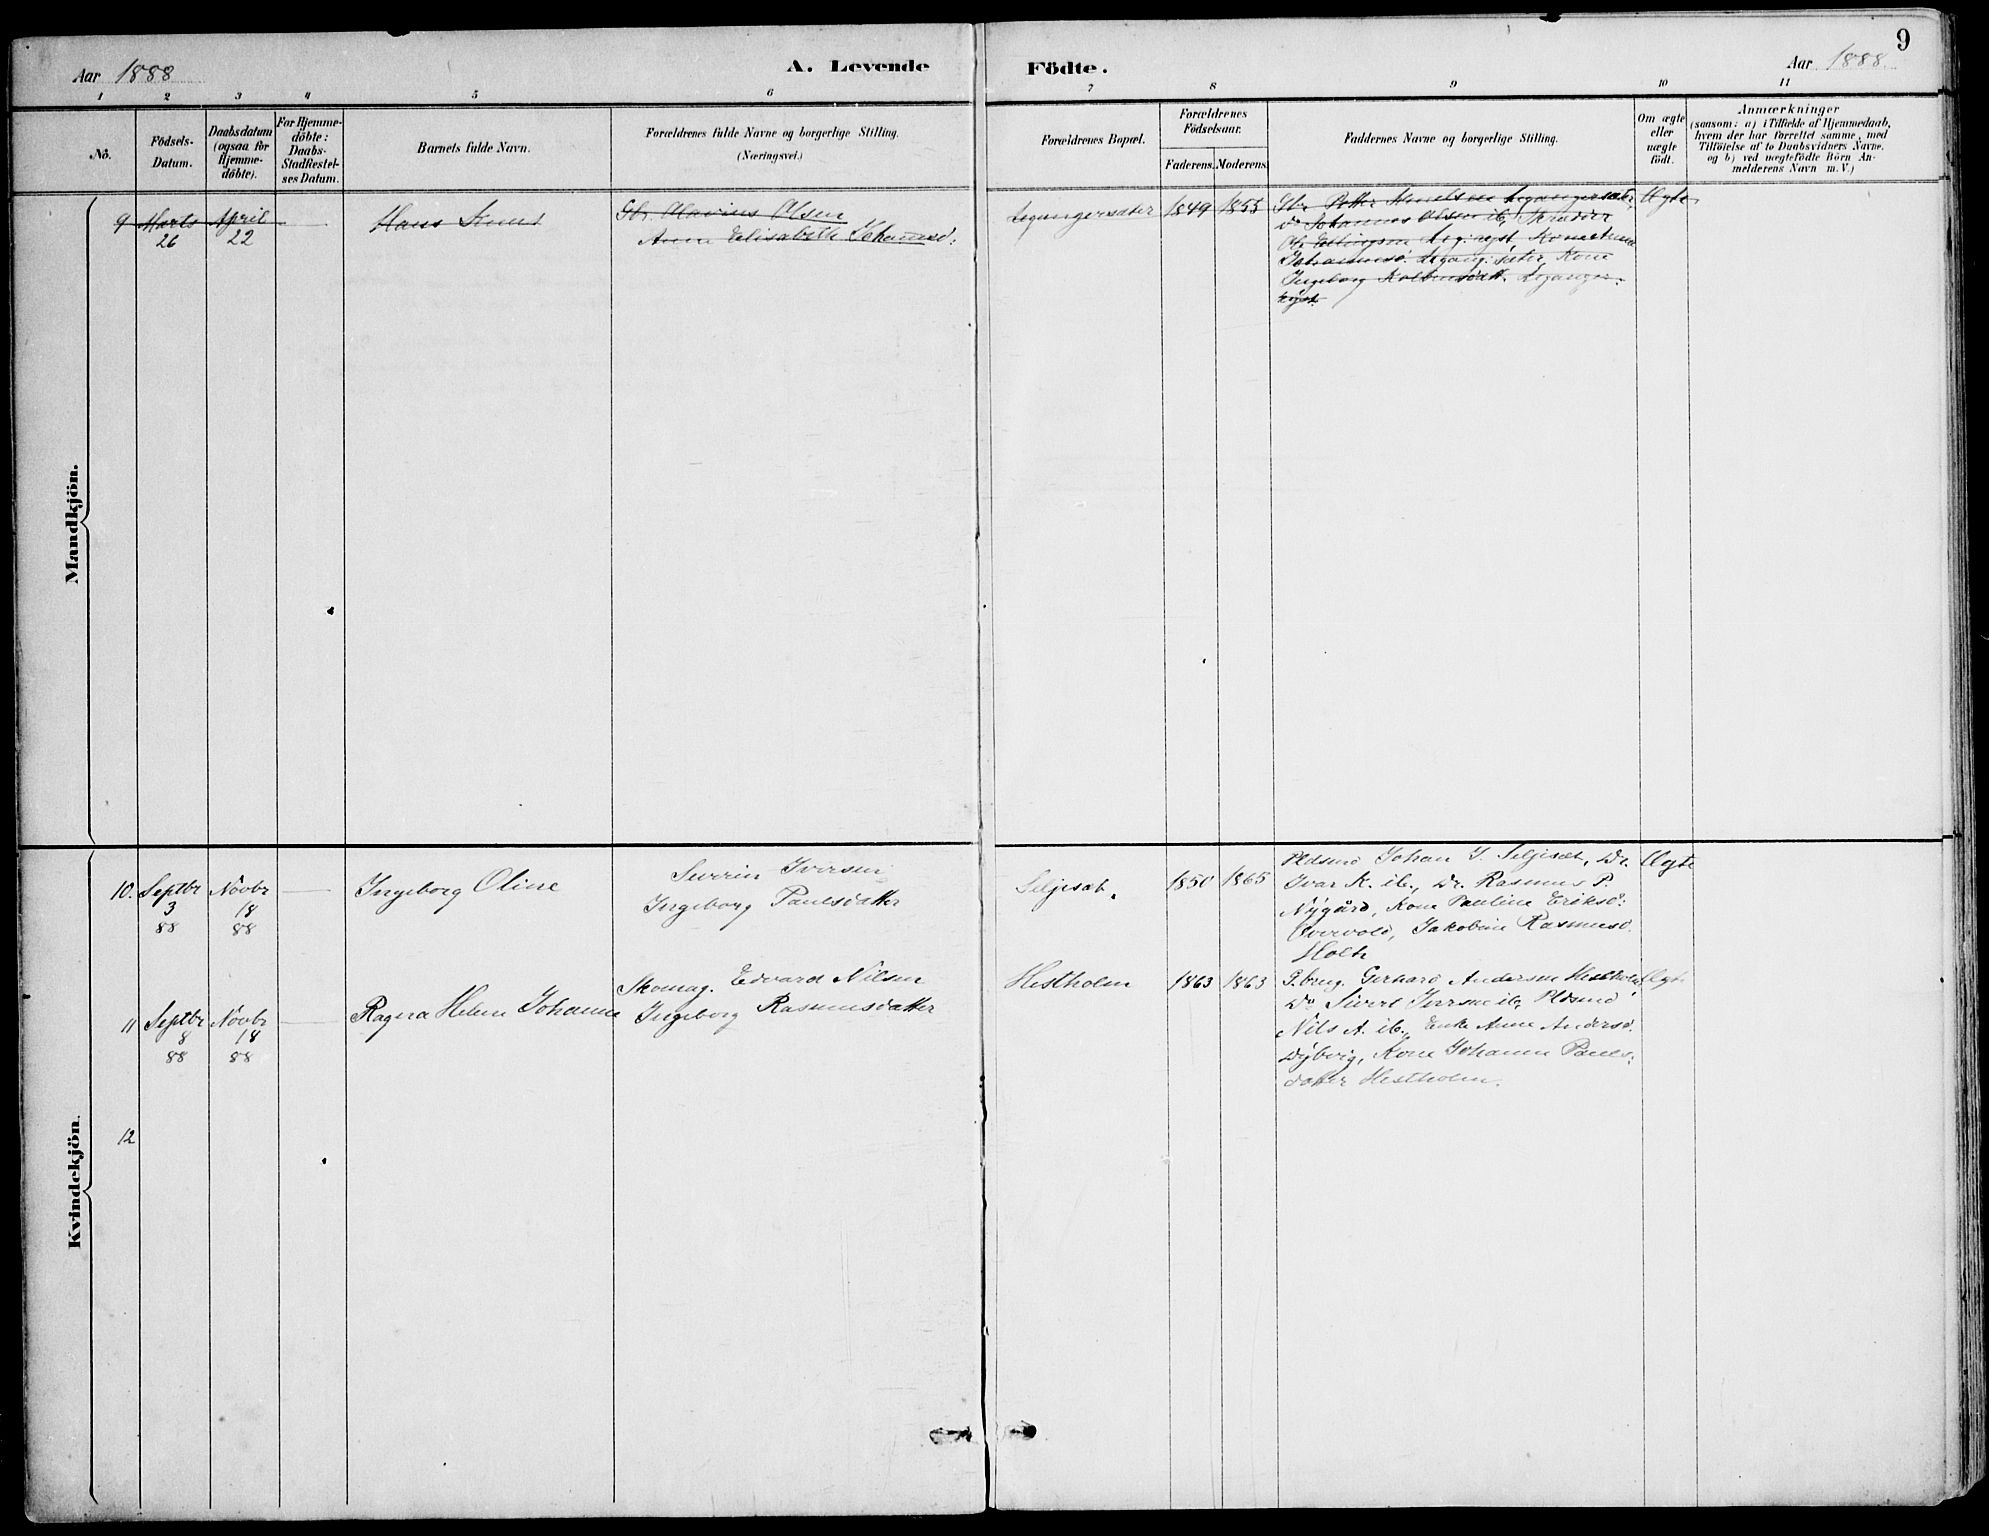 9
Aar 1888
A. Levende
Födte.
Aar 1888
1 2 3 4 5 6 7 8 9 10 11
No.
Födsels-
Datum.
Daabsdatum
(ogsaa for
Hjemme-
döbte).
For Hjemme-
döbte:
Daabs-
Stadfæstel-
ses Datum.
Barnets fulde Navn.
Forældrenes fulde Navne og borgerlige Stilling.
(Næringsvei.)
Forældrenes Bopæl.
Forældrenes
Födselsaar.
Faderens.
Moderens.
Faddernes Navne og borgerlige Stilling.
Om ægte
eller
uægte
födt.
Anmærkninger
(saasom: a) i Tilfælde af Hjemmedaab,
hvem der har forrettet samme, med
Tilföielse af to Daabsvidners Navne.
og b) ved uægtefödte Börn An-
melderens Navn m. V.)
Mandkjön.
9
Marts
26
April
22
Hans Knud
Gbr. Olavius Olsen
Anne Elisabeth Johannesd.
Leganger sæter
1849
1855
Gbr Petter Leganger sæter,
Do Johannes Olsen ib, Skrædder
Ole Ellingsen
Johannesd. Legang. sæter, Kone
Ingeborg Leganger-
Ægte
Kvindekjön.
10.
Septbr
3
88
Novbr
18
88
Ingeborg Oline
Severin Iversen
Ingeborg Paulsdatter
Seljesæt.
1850
1865
Pldsmd Johan I. Seljesæt, Do.
Ivar K. ib., Do. Rasmus P.
Nygård, Kone Pauline Eriksd:
Overvold, Jakobine Rasmusd.
Holth
Ægte
11
Septbr
8
88
Novbr
18
88
Ragna Helene Johanne
Skomag. Edvard Nilsen
Ingeborg Rasmusdatter
Hestholm
1863
1863
G.brug. Gerhard Andersen Hestholm
Do Sivert Iversen ib, Pldsmd
Nils A. ib., Enke Anne Andersd.
Dybvig, Kone Johanne Pauls-
datter Hestholm.
Ægte
12